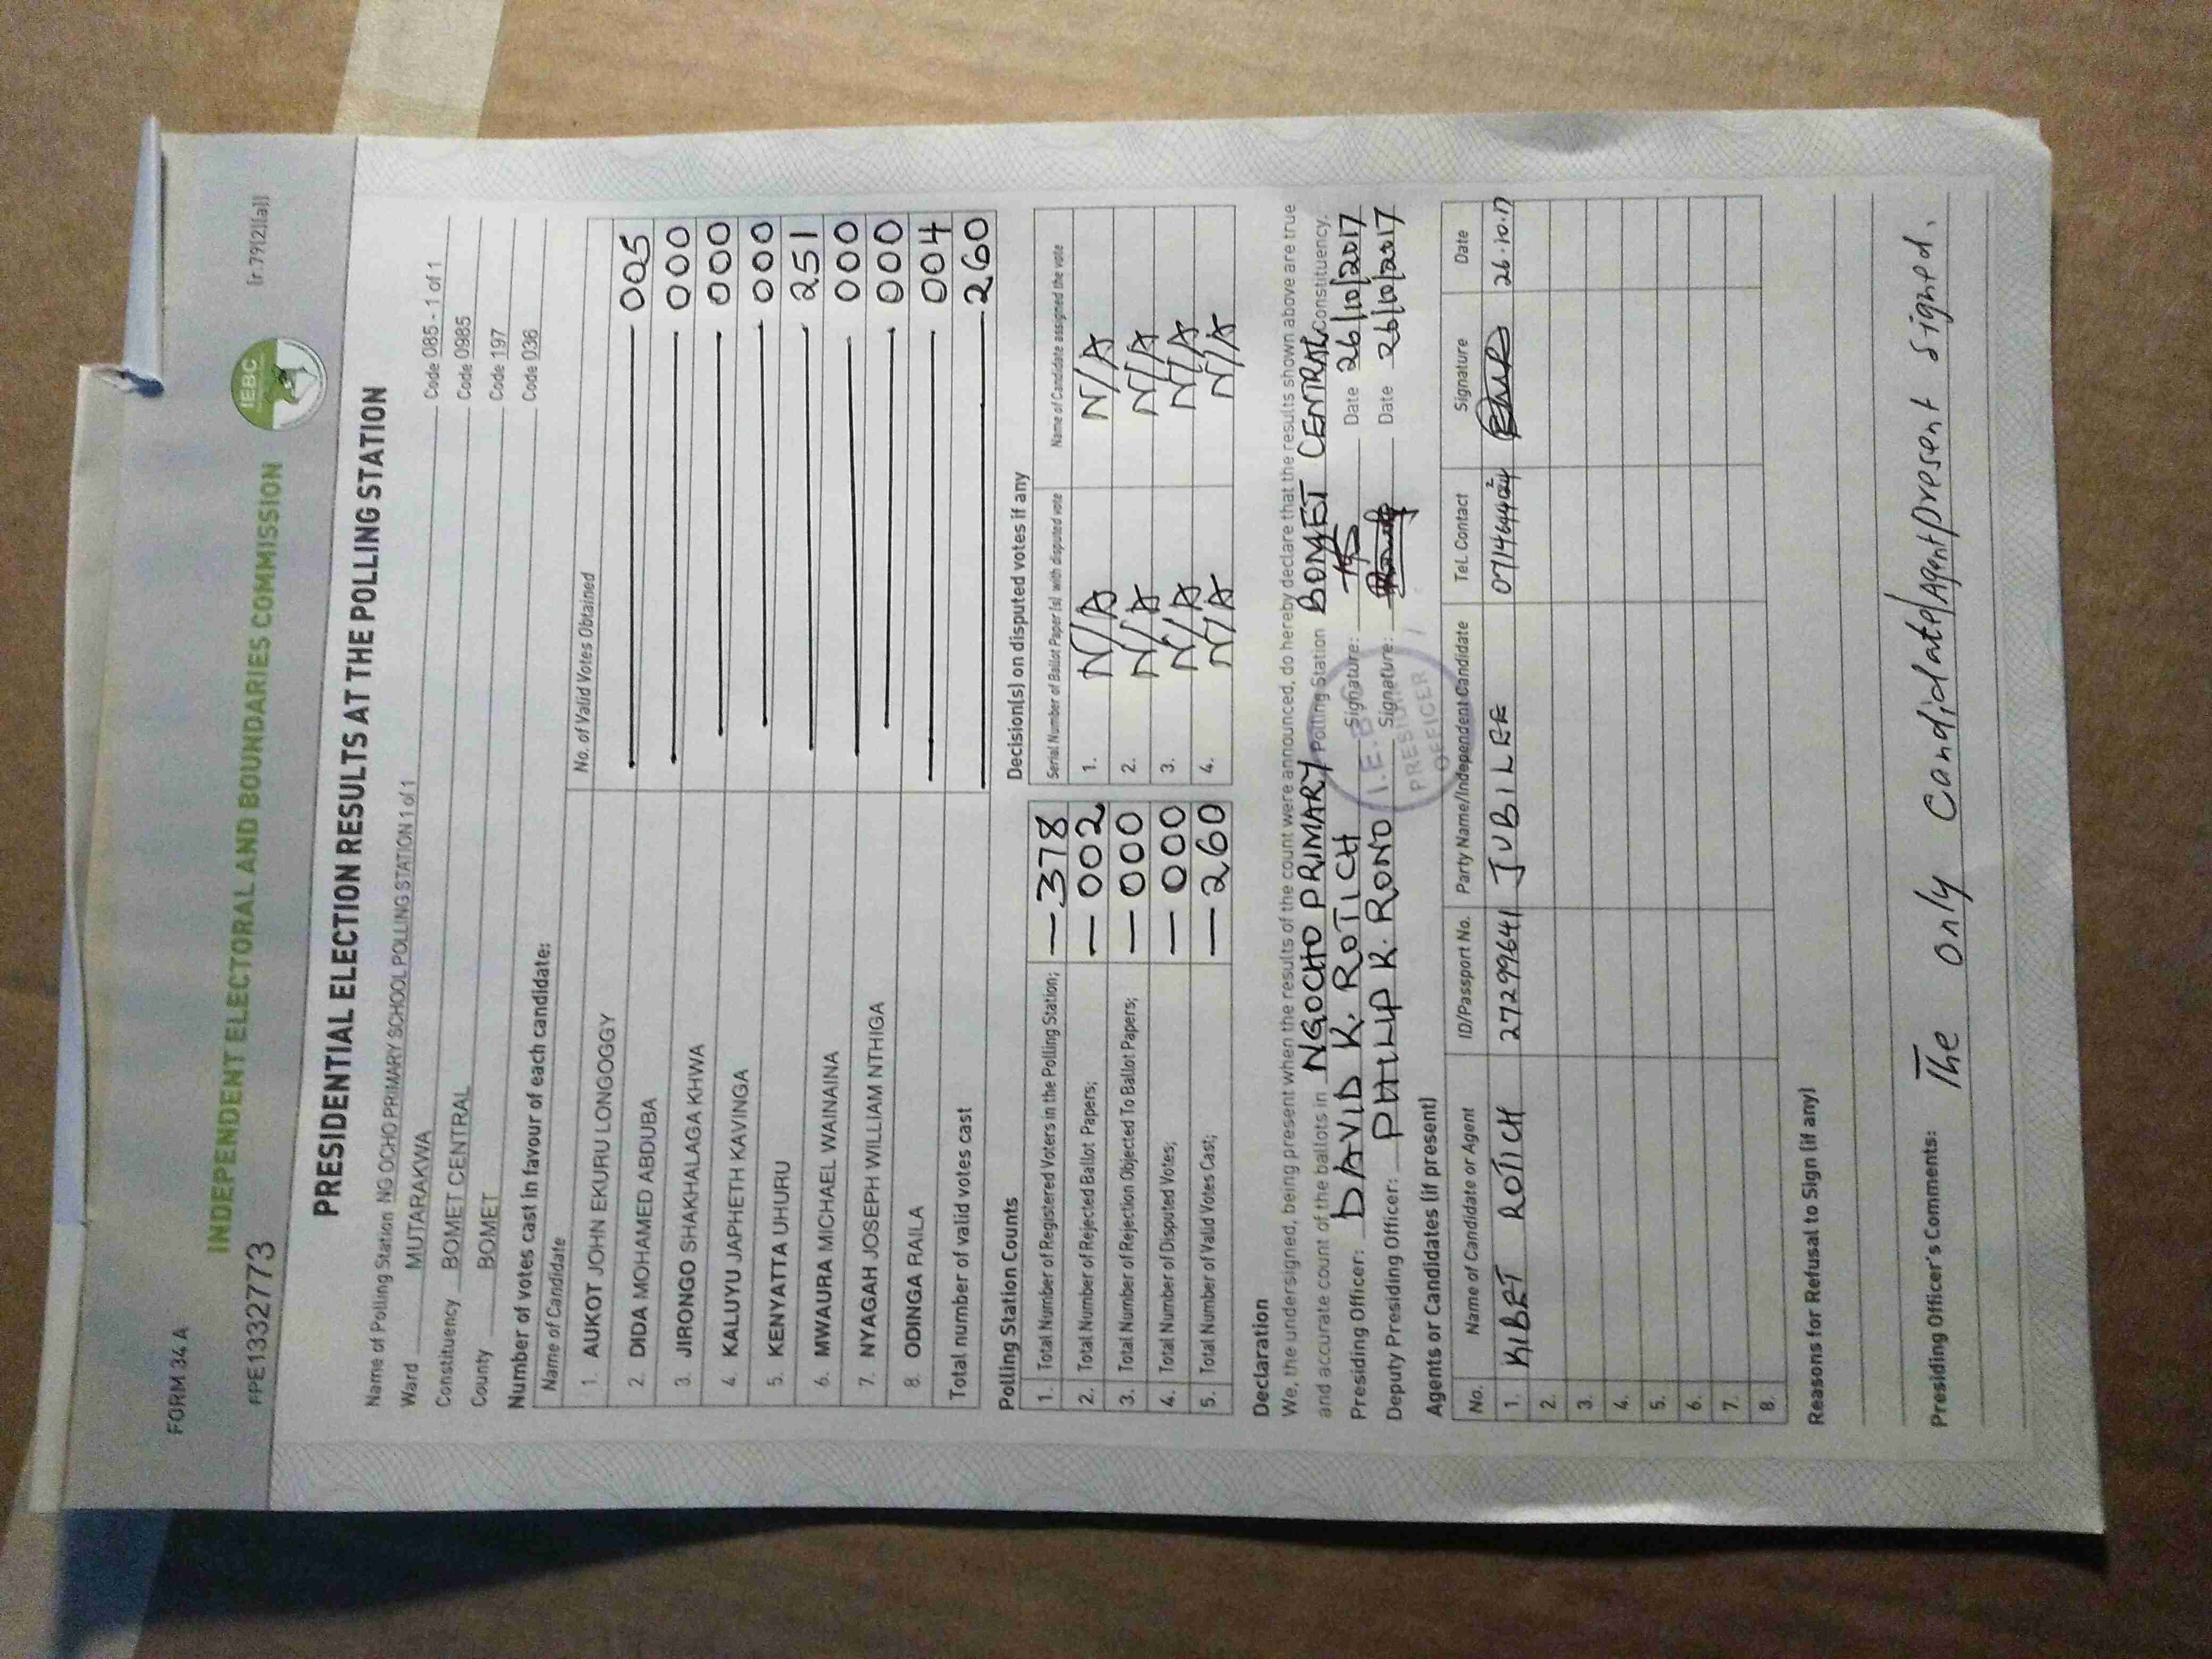 FORM 34 A
[r.79(2)(a)]
INDEPENDENT ELECTORAL AND BOUNDARIES COMMISSION
IEBC
PRESIDENTIAL ELECTION RESULTS AT THE POLLING STATION
Name of Polling Station NG OCHO PRIMARY SCHOOL POLLING STATION 1 of 1 Code 085 - 1 of 1
Ward MUTARAKWA Code 0985
Constituency BOMET CENTRAL Code 197
County BOMET Code 036
Number of votes cast in favour of each candidate:
Name of Candidate No. of Valid Votes Obtained
1. AUKOT JOHN EKURU LONGOGGY 005
2. DIDA MOHAMED ABDUBA 000
3. JIRONGO SHAKHALAGA KHWA 000
4. KALUYU JAPHETH KAVINGA 000
5. KENYATTA UHURU 251
6. MWAURA MICHAEL WAINAINA 000
7. NYAGAH JOSEPH WILLIAM NTHIGA 000
8. ODINGA RAILA 004
Total number of valid votes cast 260
Polling Station Counts
1. Total Number of Registered Voters in the Polling Station; — 378
2. Total Number of Rejected Ballot Papers; — 002
3. Total Number of Rejection Objected To Ballot Papers; — 000
4. Total Number of Disputed Votes; — 000
5. Total Number of Valid Votes Cast; — 260
Decision(s) on disputed votes if any
Serial Number of Ballot Paper (s) with disputed vote Name of Candidate assigned the vote
1. N/A N/A
2. N/A N/A
3. N/A N/A
4. N/A N/A
Declaration
We, the undersigned, being present when the results of the count were announced, do hereby declare that the results shown above are true
and accurate count of the ballots in NGOCHO PRIMARY Polling Station BOMET CENTRAL Constituency.
Presiding Officer: DAVID K. ROTICH Signature: Date 26/10/2017
Deputy Presiding Officer: PHILLIP R. RONO Signature: Date 26/10/2017
I.E.B.C
PRESIDING
OFFICER
Agents or Candidates (if present)
No. Name of Candidate or Agent ID/Passport No. Party Name/Independent Candidate Tel. Contact Signature Date
1. KIBET ROTICH 27299641 JUBILEE 26.10.17
2.
3.
4.
5.
6.
7.
8.
Reasons for Refusal to Sign (if any)
Presiding Officer's Comments: The only Candidate/Agent present signed.